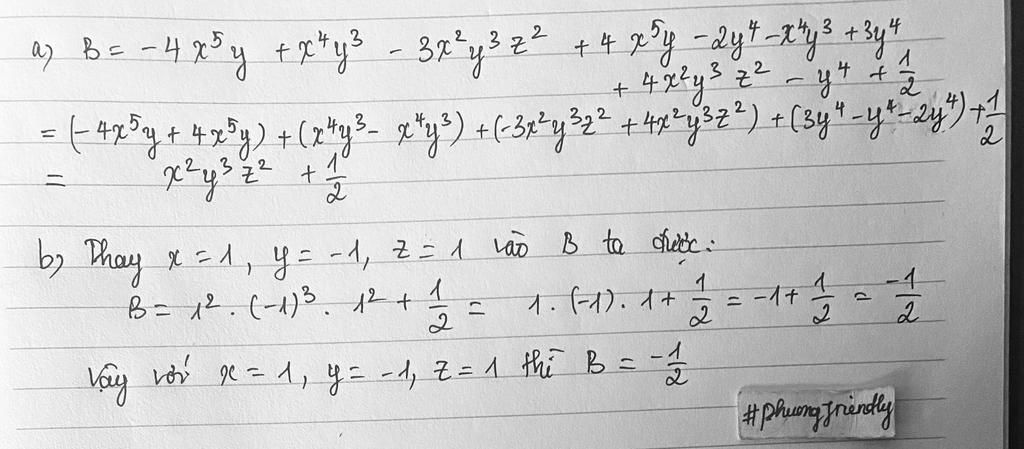 a) B = -4x⁵y + x⁴y³ - 3x²y³z² + 4x⁵y - 2y⁴ - x⁴y³ + 3y⁴
+ 4x²y³z² - y⁴ + 1/2
= (-4x⁵y + 4x⁵y) + (x⁴y³ - x⁴y³) + (-3x²y³z² + 4x²y³z²) + (3y⁴ - y⁴ - 2y⁴) + 1/2
= x²y³z² + 1/2
b) Thay x = 1, y = -1, z = 1 vào B ta được:
B = 1² . (-1)³ . 1² + 1/2 = 1 . (-1) . 1 + 1/2 = -1 + 1/2 = -1/2
Vậy với x = 1, y = -1, z = 1 thì B = -1/2
#phuongfriendly